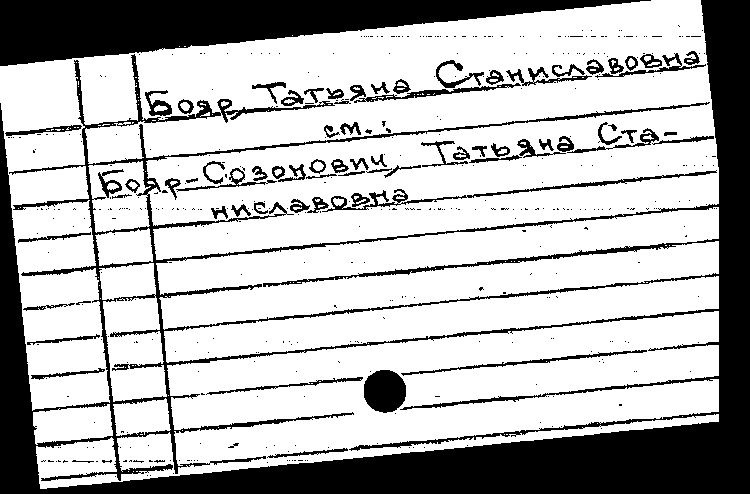 Бояр, Татьяна Станиславовна
см.:
Бояр-Созонович, Татьяна Ста-
ниславовна